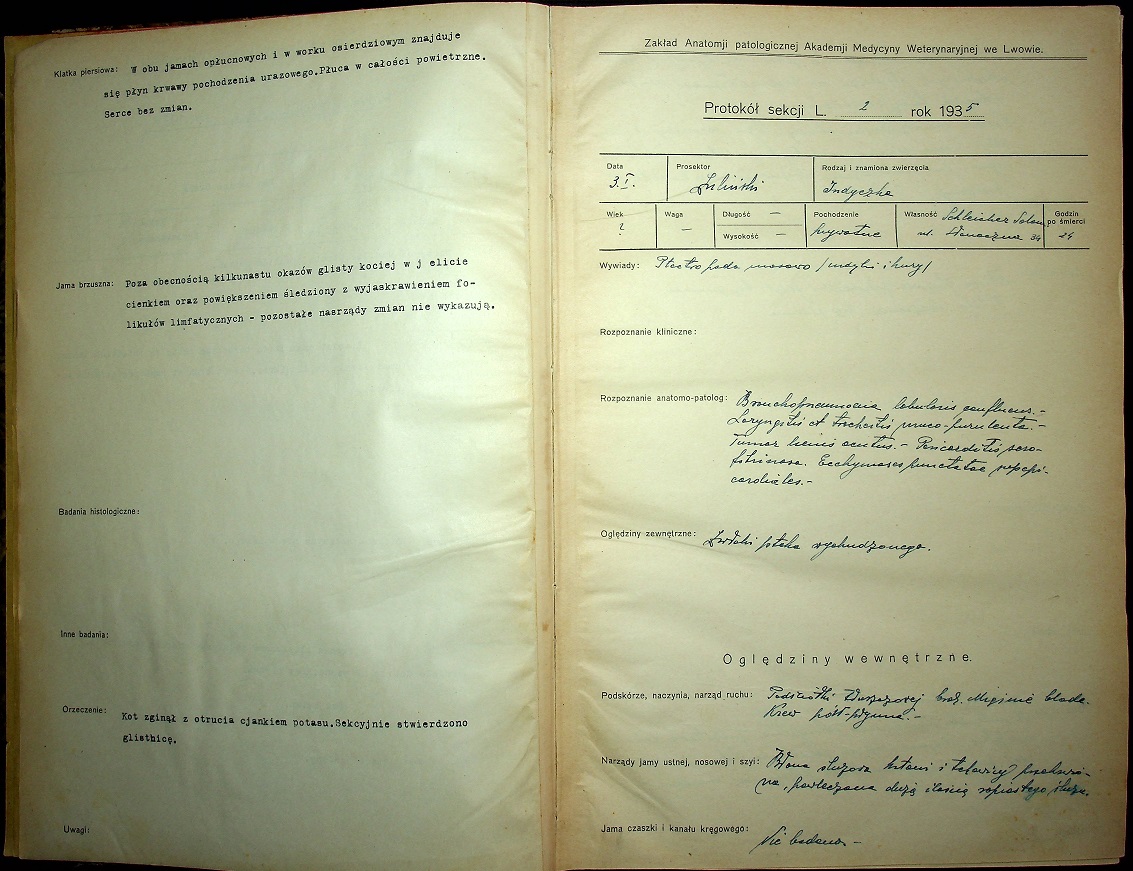 Klatka piersiowa: W obu jamach opłucnowych i w worku osierdziowym znajduje
się płyn krwawy pochodzenia urazowego.Płuca w całości powietrzne.
Serce bez zmian.
Jama brzuszna: Poza obecnością kilkunastu okazów glisty kociej w j elicie
cienkiem oraz powiększeniem śledziony z wyjaskrawieniem fo-
likułów limfatycznych - pozostałe nasrządy zmian nie wykazują.
Badania histologiczne:
Inne badania:
Orzeczenie: Kot zginął z otrucia cjankiem potasu.Sekcyjnie stwierdzono
glistnicę.
Uwagi:
Zakład Anatomji patologicznej Akademji Medycyny Weterynaryjnej we Lwowie.
Protokół sekcji L. 2 rok 1935
Data Prosektor Rodzaj i znamiona zwierzęcia
3.I. Indyczka
Wiek Waga Długość — Pochodzenie Własność Schleicher Godzin po śmierci
? — Wysokość — prywatne ul. Słoneczna 34 24
Wywiady: Ptactwo pada masowo /indyki i kury/
Rozpoznanie kliniczne:
Rozpoznanie anatomo-patolog: Bronchopneumonia lobularis confluens.-
Laryngitis et tracheitis muco-purulenta.-
Tumor lienis acutus.- Pericarditis sero-
fibrinosa. Ecchymoses punctatae subepi-
cardiales.-
Oględziny zewnętrzne: Zwłoki ptaka wychudzonego.
Oględziny wewnętrzne.
Podskórze, naczynia, narząd ruchu: Podściółki tłuszczowej brak. Mięśnie blade.
Krew półpłynna.-
Narządy jamy ustnej, nosowej i szyi: Błona śluzowa krtani i tchawicy przekrwio-
na, powleczona dużą ilością ropiastego śluzu.
Jama czaszki i kanału kręgowego: Nie badano —